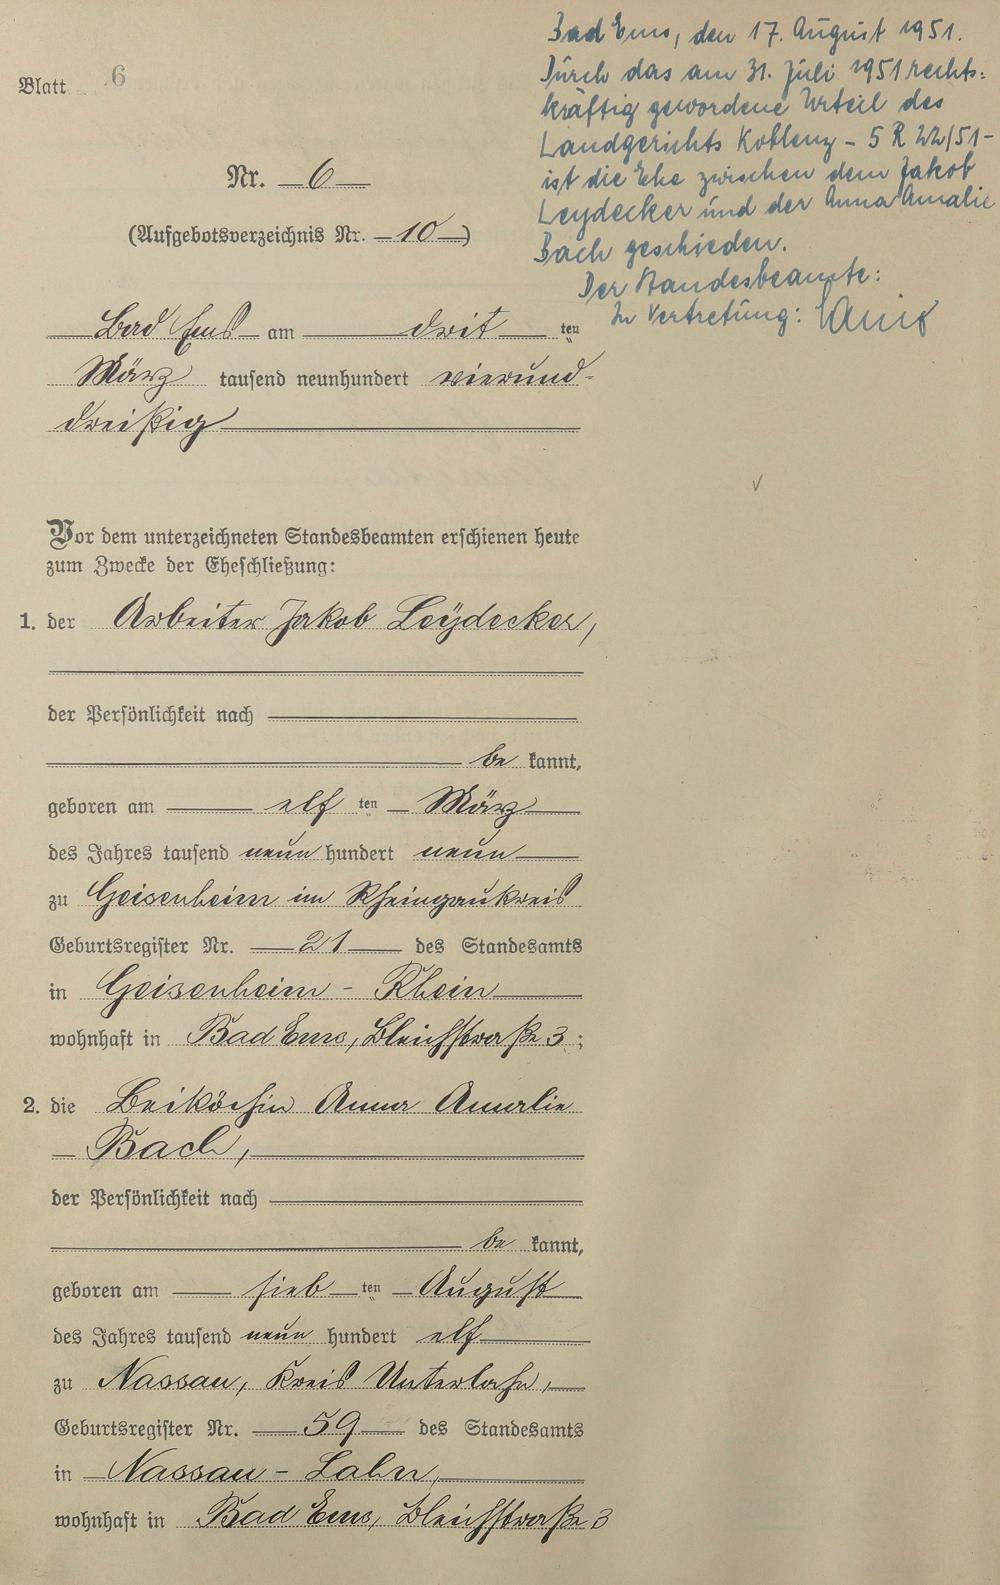 Blatt 6
Nr. 6
(Aufgebotsverzeichnis Nr. 10)
Bad Ems, den 17. August 1951.
Durch das am 31. Juli 1951 rechts-
kräftig gewordene Urteil des
Landgerichts Koblenz - 5 R 22/51 -
ist die Ehe zwischen dem Jakob
Leydecker und der Anna Amalie
Bach geschieden.
Der Standesbeamte:
In Vertretung:
Bad Ems am drit ten
März tausend neunhundert vierund-
dreißig
Vor dem unterzeichneten Standesbeamten erschienen heute
zum Zwecke der Eheschließung:
1. der Arbeiter Jakob Leydecker,
der Persönlichkeit nach
be kannt,
geboren am elf ten März
des Jahres tausend neun hundert neun
zu Geisenheim im Rheingaukreis
Geburtsregister Nr. 21 des Standesamts
in Geisenheim - Rhein
wohnhaft in Bad Ems, Bleichstraße 3;
2. die Beiköchin Anna Amalie
Bach,
der Persönlichkeit nach
be kannt,
geboren am sieb ten August
des Jahres tausend neun hundert elf
zu Nassau, Kreis Unterlahn,
Geburtsregister Nr. 59 des Standesamts
in Nassau - Lahn,
wohnhaft in Bad Ems, Bleichstraße 3